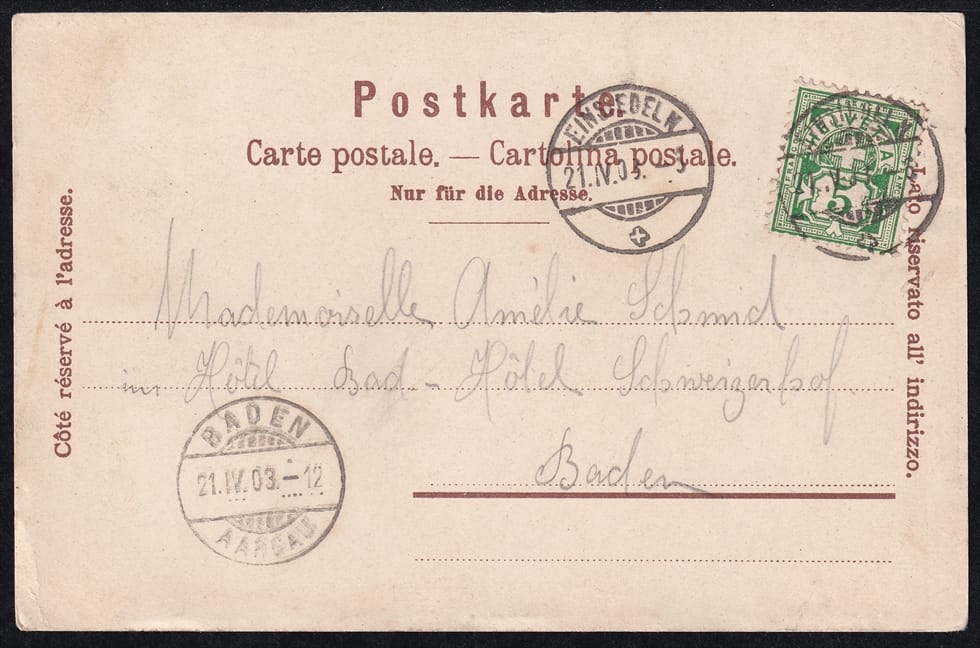 Postkarte.
Carte postale. — Cartolina postale.
Nur für die Adresse.
EINSIEDELN
21.IV.03. – 3
HELVETIA
5
Côté réservé à l'adresse.
Lato riservato all' indirizzo.
Mademoiselle Amélie Schmid
im Hôtel Bad - Hôtel Schweizerhof
Baden
BADEN
21.IV.03. – 12
AARGAU